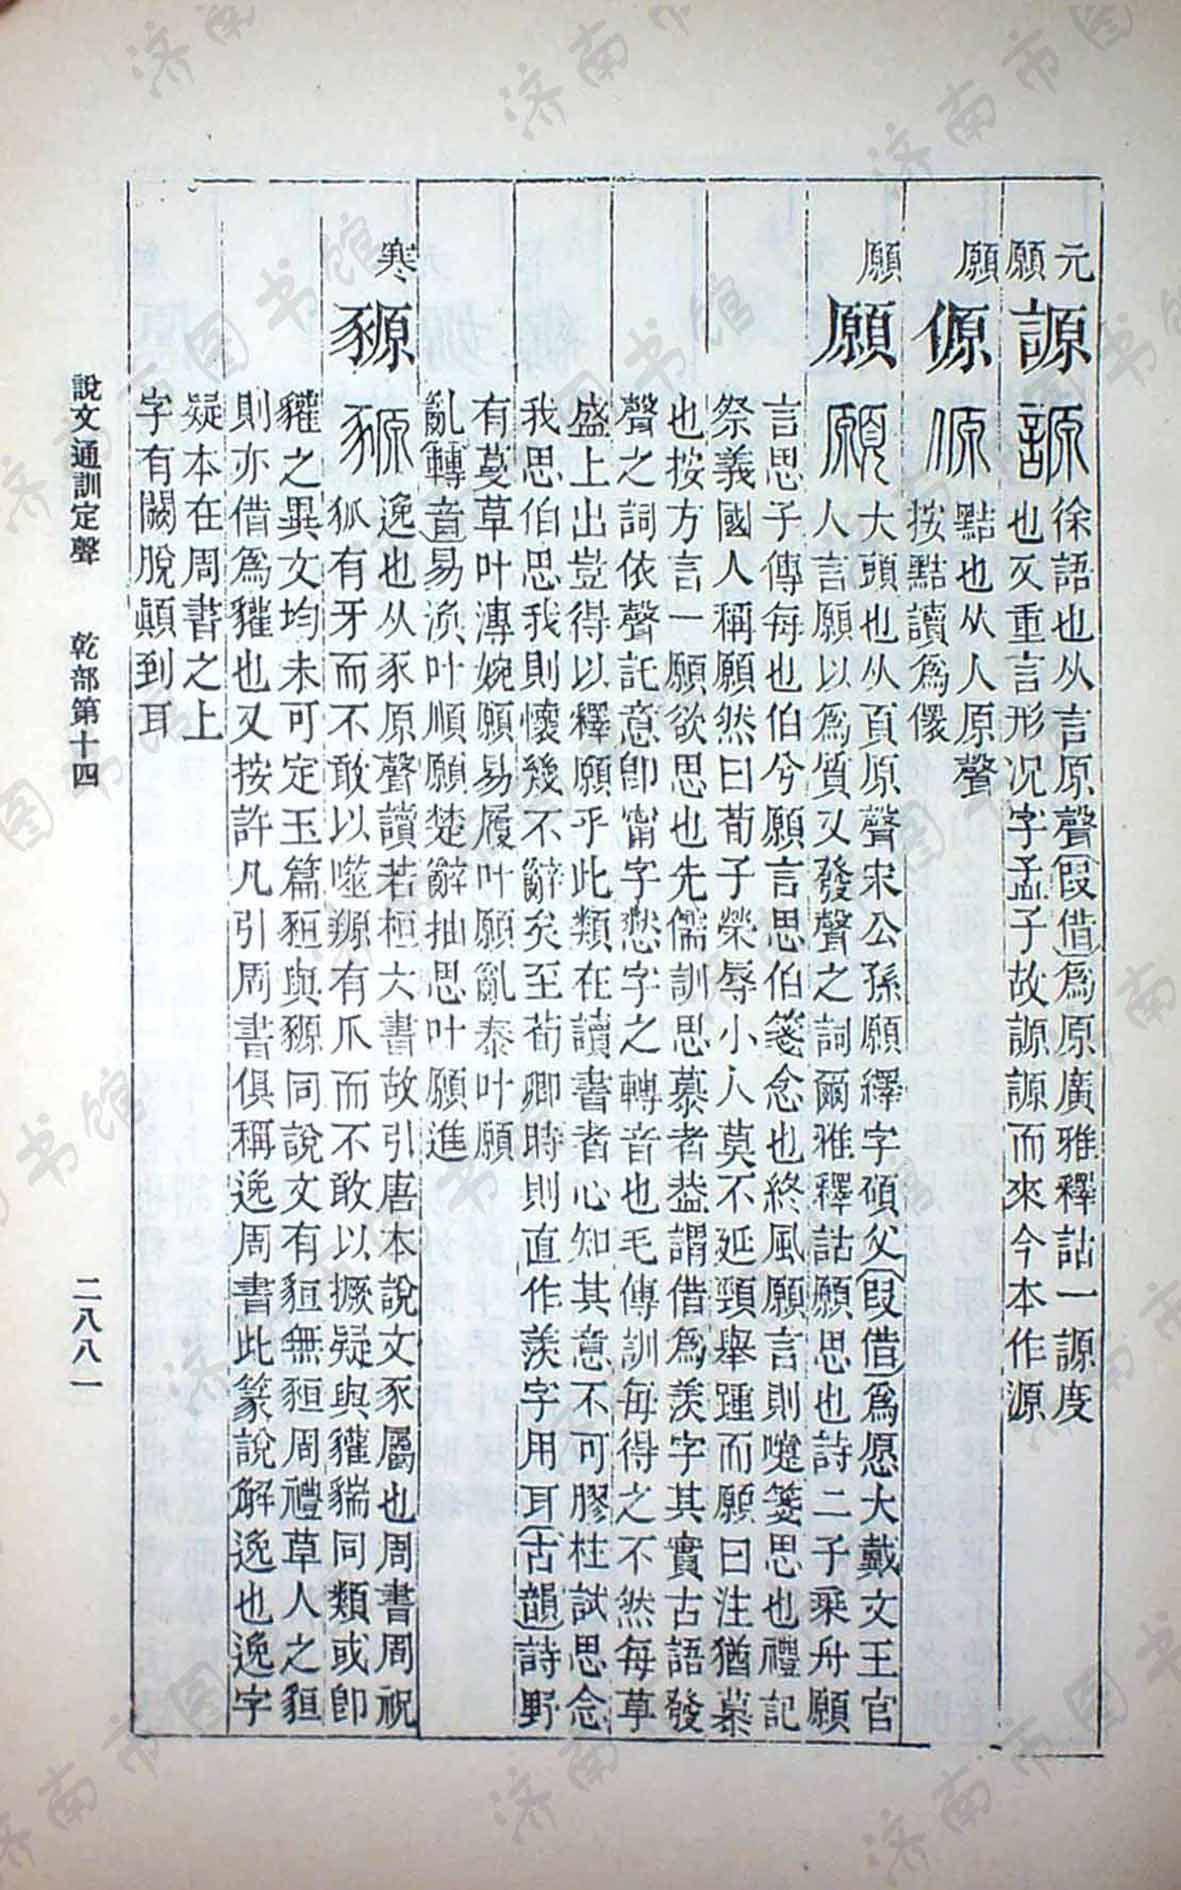 元
願
謜
謜
徐語也从言原聲(叚借)爲原廣雅釋詁一謜度
也又重言形況字孟子故謜謜而來今本作源
願
傆
傆
黠也从人原聲
按黠讀爲儇
願
願
願
大頭也从頁原聲宋公孫願繹字碩父(叚借)爲愿大戴文王官
人言願以爲質又發聲之詞爾雅釋詁願思也詩二子乘舟願
言思子傳每也伯兮願言思伯箋念也終風願言則嚏箋思也禮記
祭義國人稱願然曰荀子榮辱小人莫不延頸舉踵而願曰注猶慕
也按方言一願欲思也先儒訓思慕者葢謂借爲羨字其實古語發
聲之詞依聲託意卽甯字憖字之轉音也毛傳訓每得之不然每草
盛上出豈得以釋願乎此類在讀書者心知其意不可膠柱試思念
我思伯思我則懷幾不辭矣至荀卿時則直作羨字用耳(古韻)詩野
有蔓草叶漙婉願易履叶願亂泰叶願
亂(轉音)易渙叶順願楚辭抽思叶願進
寒
豲
豲
逸也从豕原聲讀若桓六書故引唐本說文豕屬也周書周祝
狐有牙而不敢以噬豲有爪而不敢以撅疑與貛貒同類或卽
貛之異文均未可定玉篇貆與豲同說文有貆無狟周禮草人之貆
則亦借爲貛也又按許凡引周書俱稱逸周書此篆說解逸也逸字
疑本在周書之上
字有闕脫顛到耳
說文通訓定聲　乾部第十四　二八八一
济南市图书馆